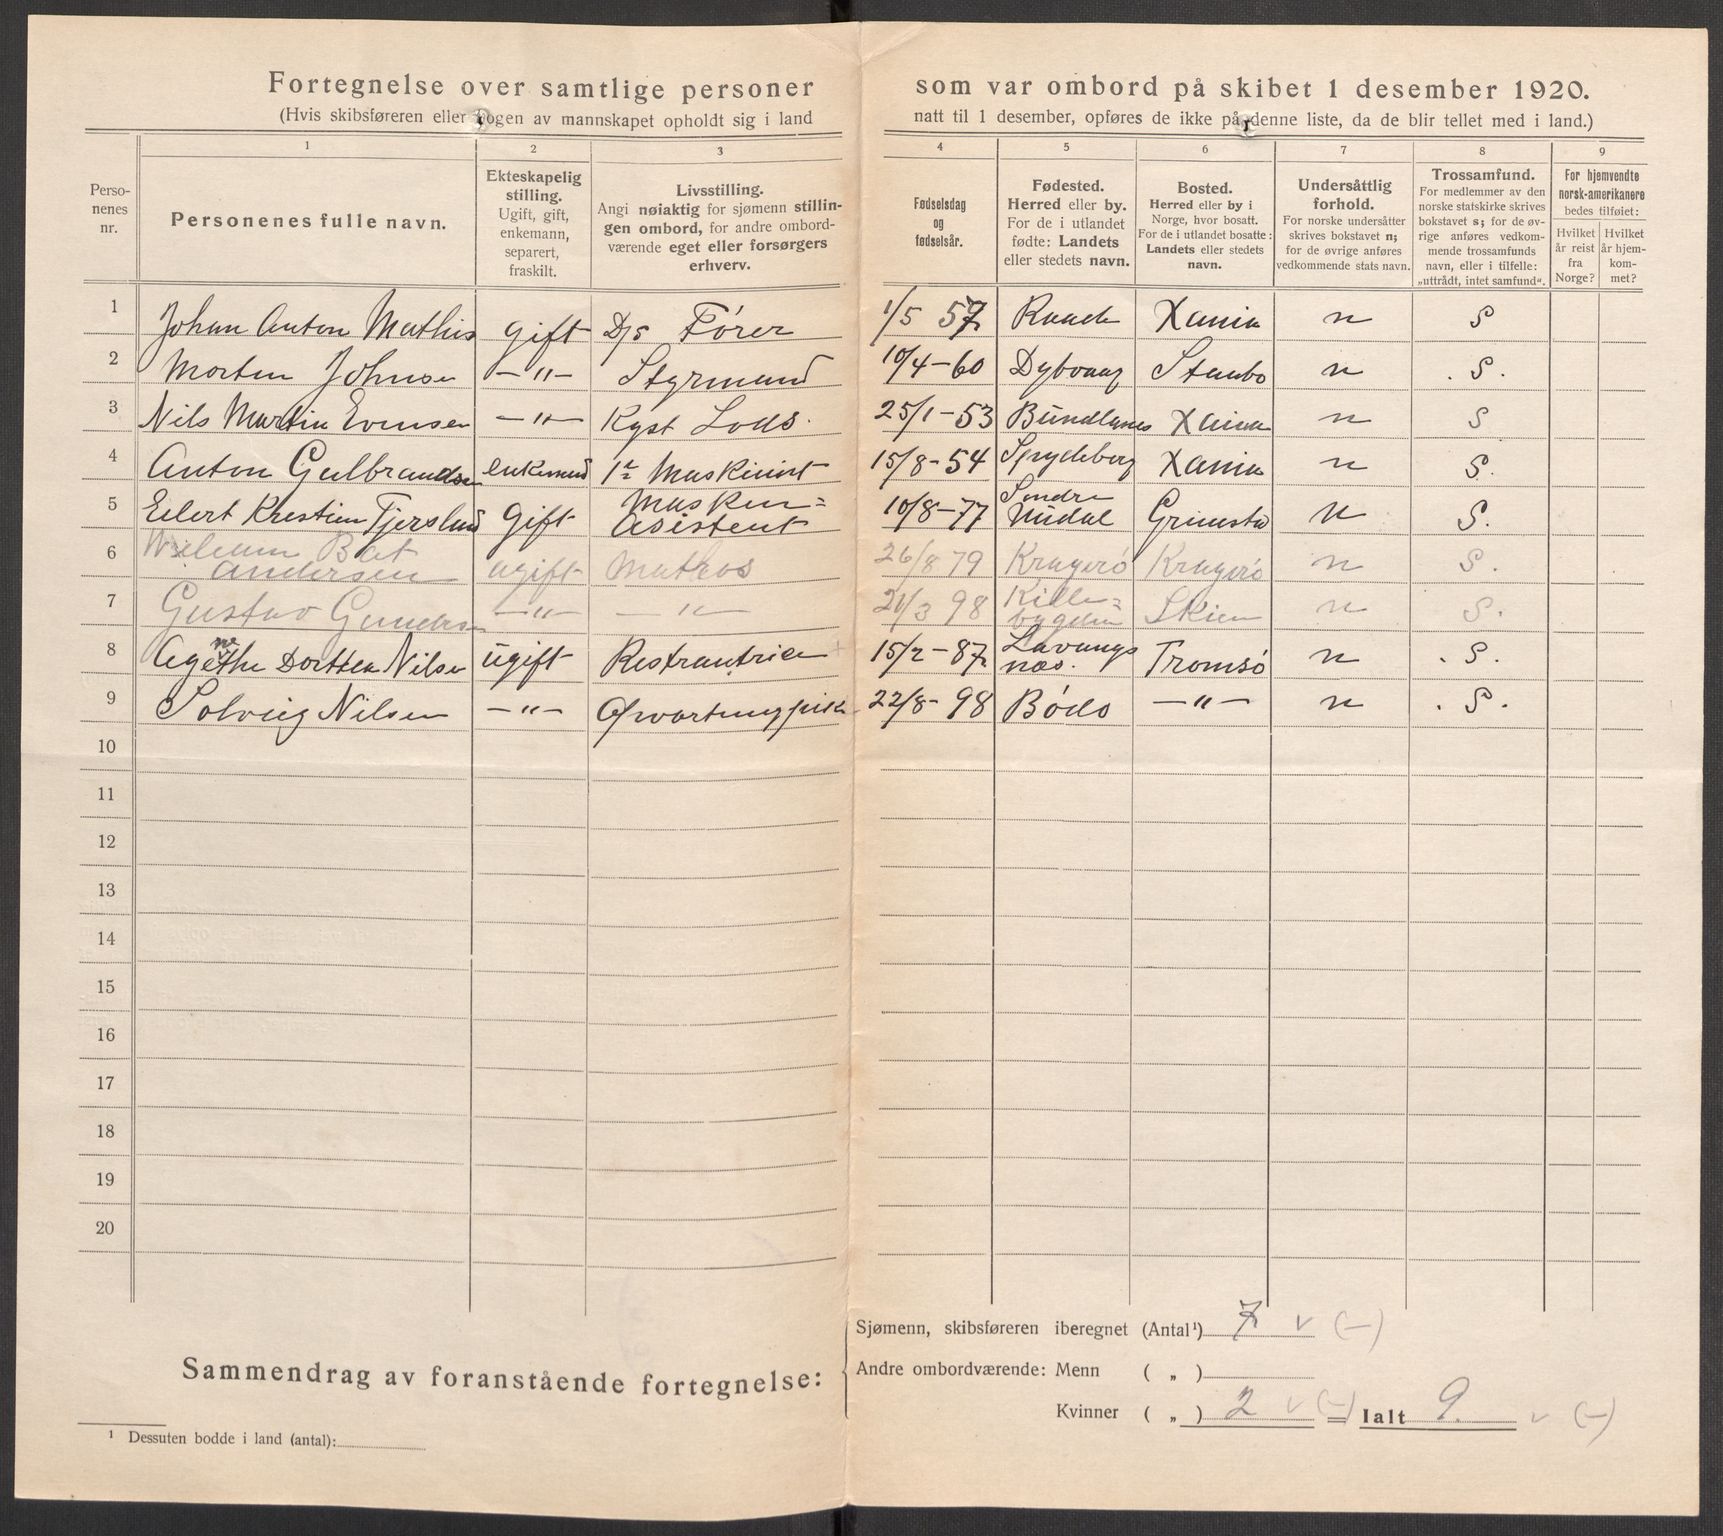 Fortegnelse over samtlige personer som var ombord på skibet 1 desember 1920.
(Hvis skibsføreren eller nogen av mannskapet opholdt sig i land natt til 1 desember, opføres de ikke på denne liste, da de blir tellet med i land.)
Personenes nr.
1 Personenes fulle navn.
2 Ekteskapelig stilling. Ugift, gift, enkemann, separert, fraskilt.
3 Livsstilling. Angi nøiaktig for sjømenn stillingen ombord, for andre ombordværende eget eller forsørgers erhverv.
4 Fødselsdag og fødselsår.
5 Fødested. Herred eller by. For de i utlandet fødte: Landets eller stedets navn.
6 Bosted. Herred eller by i Norge, hvor bosatt. For de i utlandet bosatte: Landets eller stedets navn.
7 Undersåttlig forhold. For norske undersåtter skrives bokstavet n; for de øvrige anføres vedkommende stats navn.
8 Trossamfund. For medlemmer av den norske statskirke skrives bokstavet s; for de øvrige anføres vedkommende trossamfunds navn, eller i tilfelle: „uttrådt, intet samfund“.
9 For hjemvendte norsk-amerikanere bedes tilføiet: Hvilket år reist fra Norge? Hvilket år hjemkommet?
1 Johan Anton Mathis gift D/s Fører 1/5 57 Raade Xania n S
2 Morten Johnse —„— Styrmand 10/4-60 Dybvaag Staubo n . S .
3 Nils Martin Evensen —„— Kyst Lods. 25/1-53 Bundlanes Xania n S
4 Anton Gulbrandsen enkemand 1ste Maskinist 15/8-54 Spydeberg Xania n S.
5 Eilert Kristian Tjersland gift Masken= Asistent 10/8-77 Søndre Undal Grimstad n S.
6 Andersen ugift Matros 26/8 79 Kragerø Kragerø n S.
7 Gustav Gundersen —„— —„— 21/3 98 Kille= bygden Skien n S.
8 Dorthea Nilsen ugift Restrautrice 15/2-87 Lavangs næs. Tromsø n . S .
9 Solveig Nilsen —„— Opvartningspike 22/8-98 Bodø —„— n . S .
10
11
12
13
14
15
16
17
18
19
20
Sammendrag av foranstående fortegnelse:
Sjømenn, skibsføreren iberegnet (Antal¹) 7 v (—)
Andre ombordværende: Menn ( „ )
Kvinner ( „ ) 2 v (—) = Ialt 9. v (—)
¹ Dessuten bodde i land (antal):